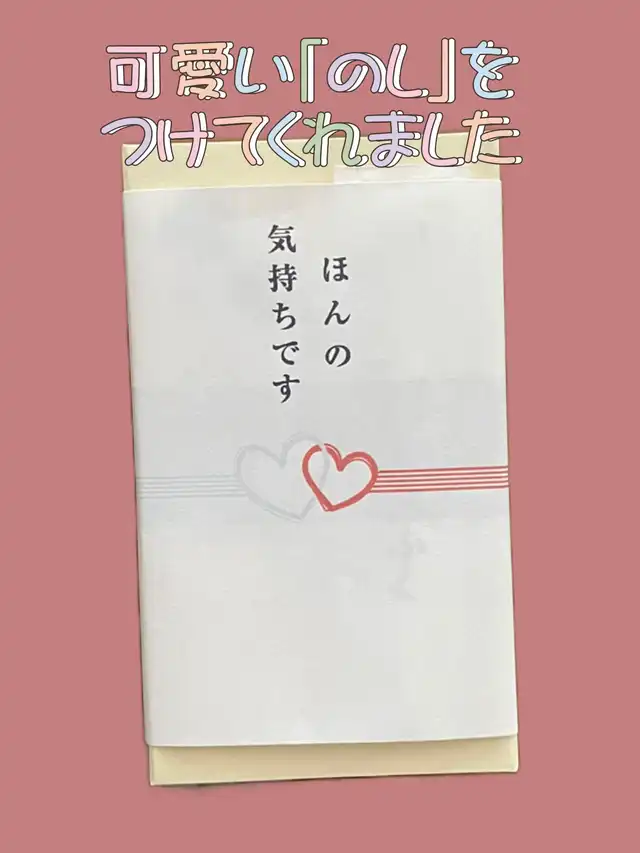 可愛い「のし」を
つけてくれました
ほんの
気持ちです